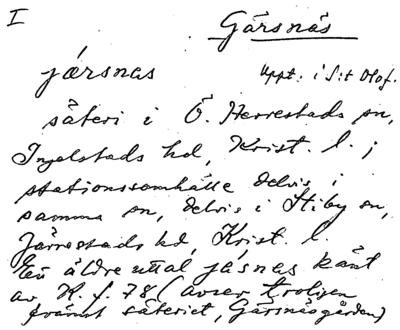 I
Gärsnäs
jǽrsnas Uppt. i S:t Olof.
säteri i Ö. Herrestads sn,
Ingelstads hd, Krist. l. ;
stationssamhälle delvis i
samma sn, delvis i Stiby sn,
Järrestads hd, Krist. l.
En äldre uttal jásnas känt
av K. f. 78 (avser troligen
främst säteriet, Gärsnäsgården)